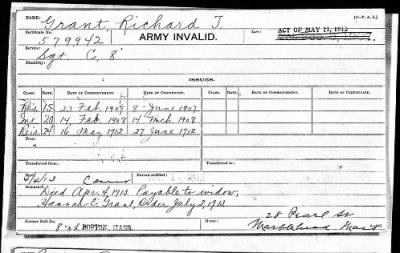 NAME:
Grant, Richard T.
Certificate No.
579942
ARMY INVALID.
ACT OF MAY 11, 1912
Service:
Sgt C, 8
Disability:
ISSUES.
CLASS. RATE. DATE OF COMMENCEMENT. DATE OF CERTIFICATE. CLASS. RATE. DATE OF COMMENCEMENT. DATE OF CERTIFICATE.
15 23 Feb 1907 8 June 1907
20 14 Feb 1908 14 Mch 1908
Reis 24 16 May 1912 27 June 1912
Transferred from:
Transferred to:
Died Apr 4, 1913. Payable to widow,
Hannah E. Grant, Order July 2, 1913
BOSTON, MASS.
Home:
28 Pearl St
Marblehead Mass